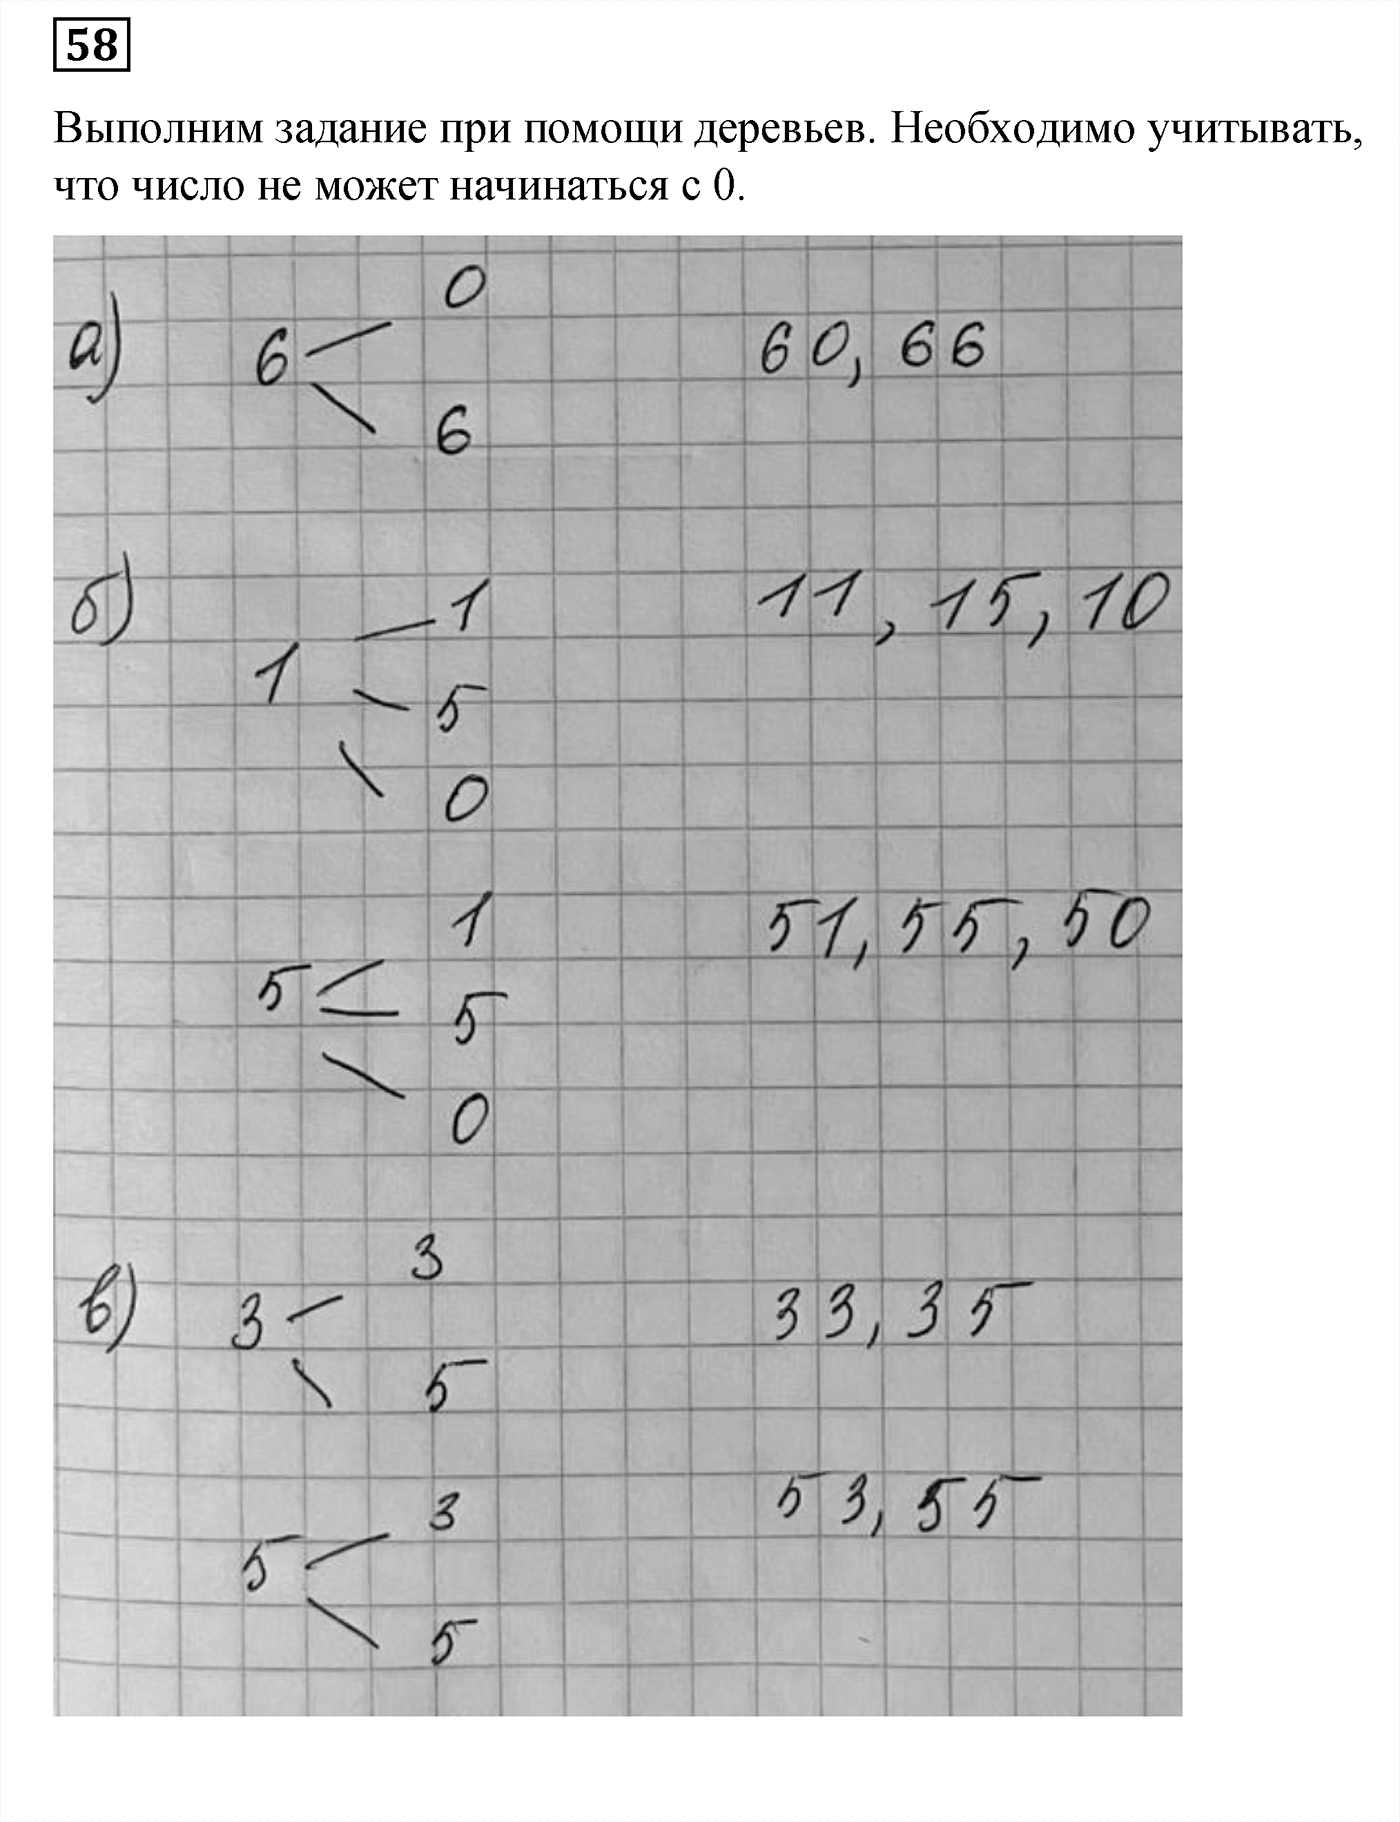 58
Выполним задание при помощи деревьев. Необходимо учитывать,
что число не может начинаться с 0.
0
а) 6 60, 66
6
б) 1 11, 15, 10
1
5
0
1 51, 55, 50
5
5
0
3
в) 3 33, 35
5
3 53, 55
5
5